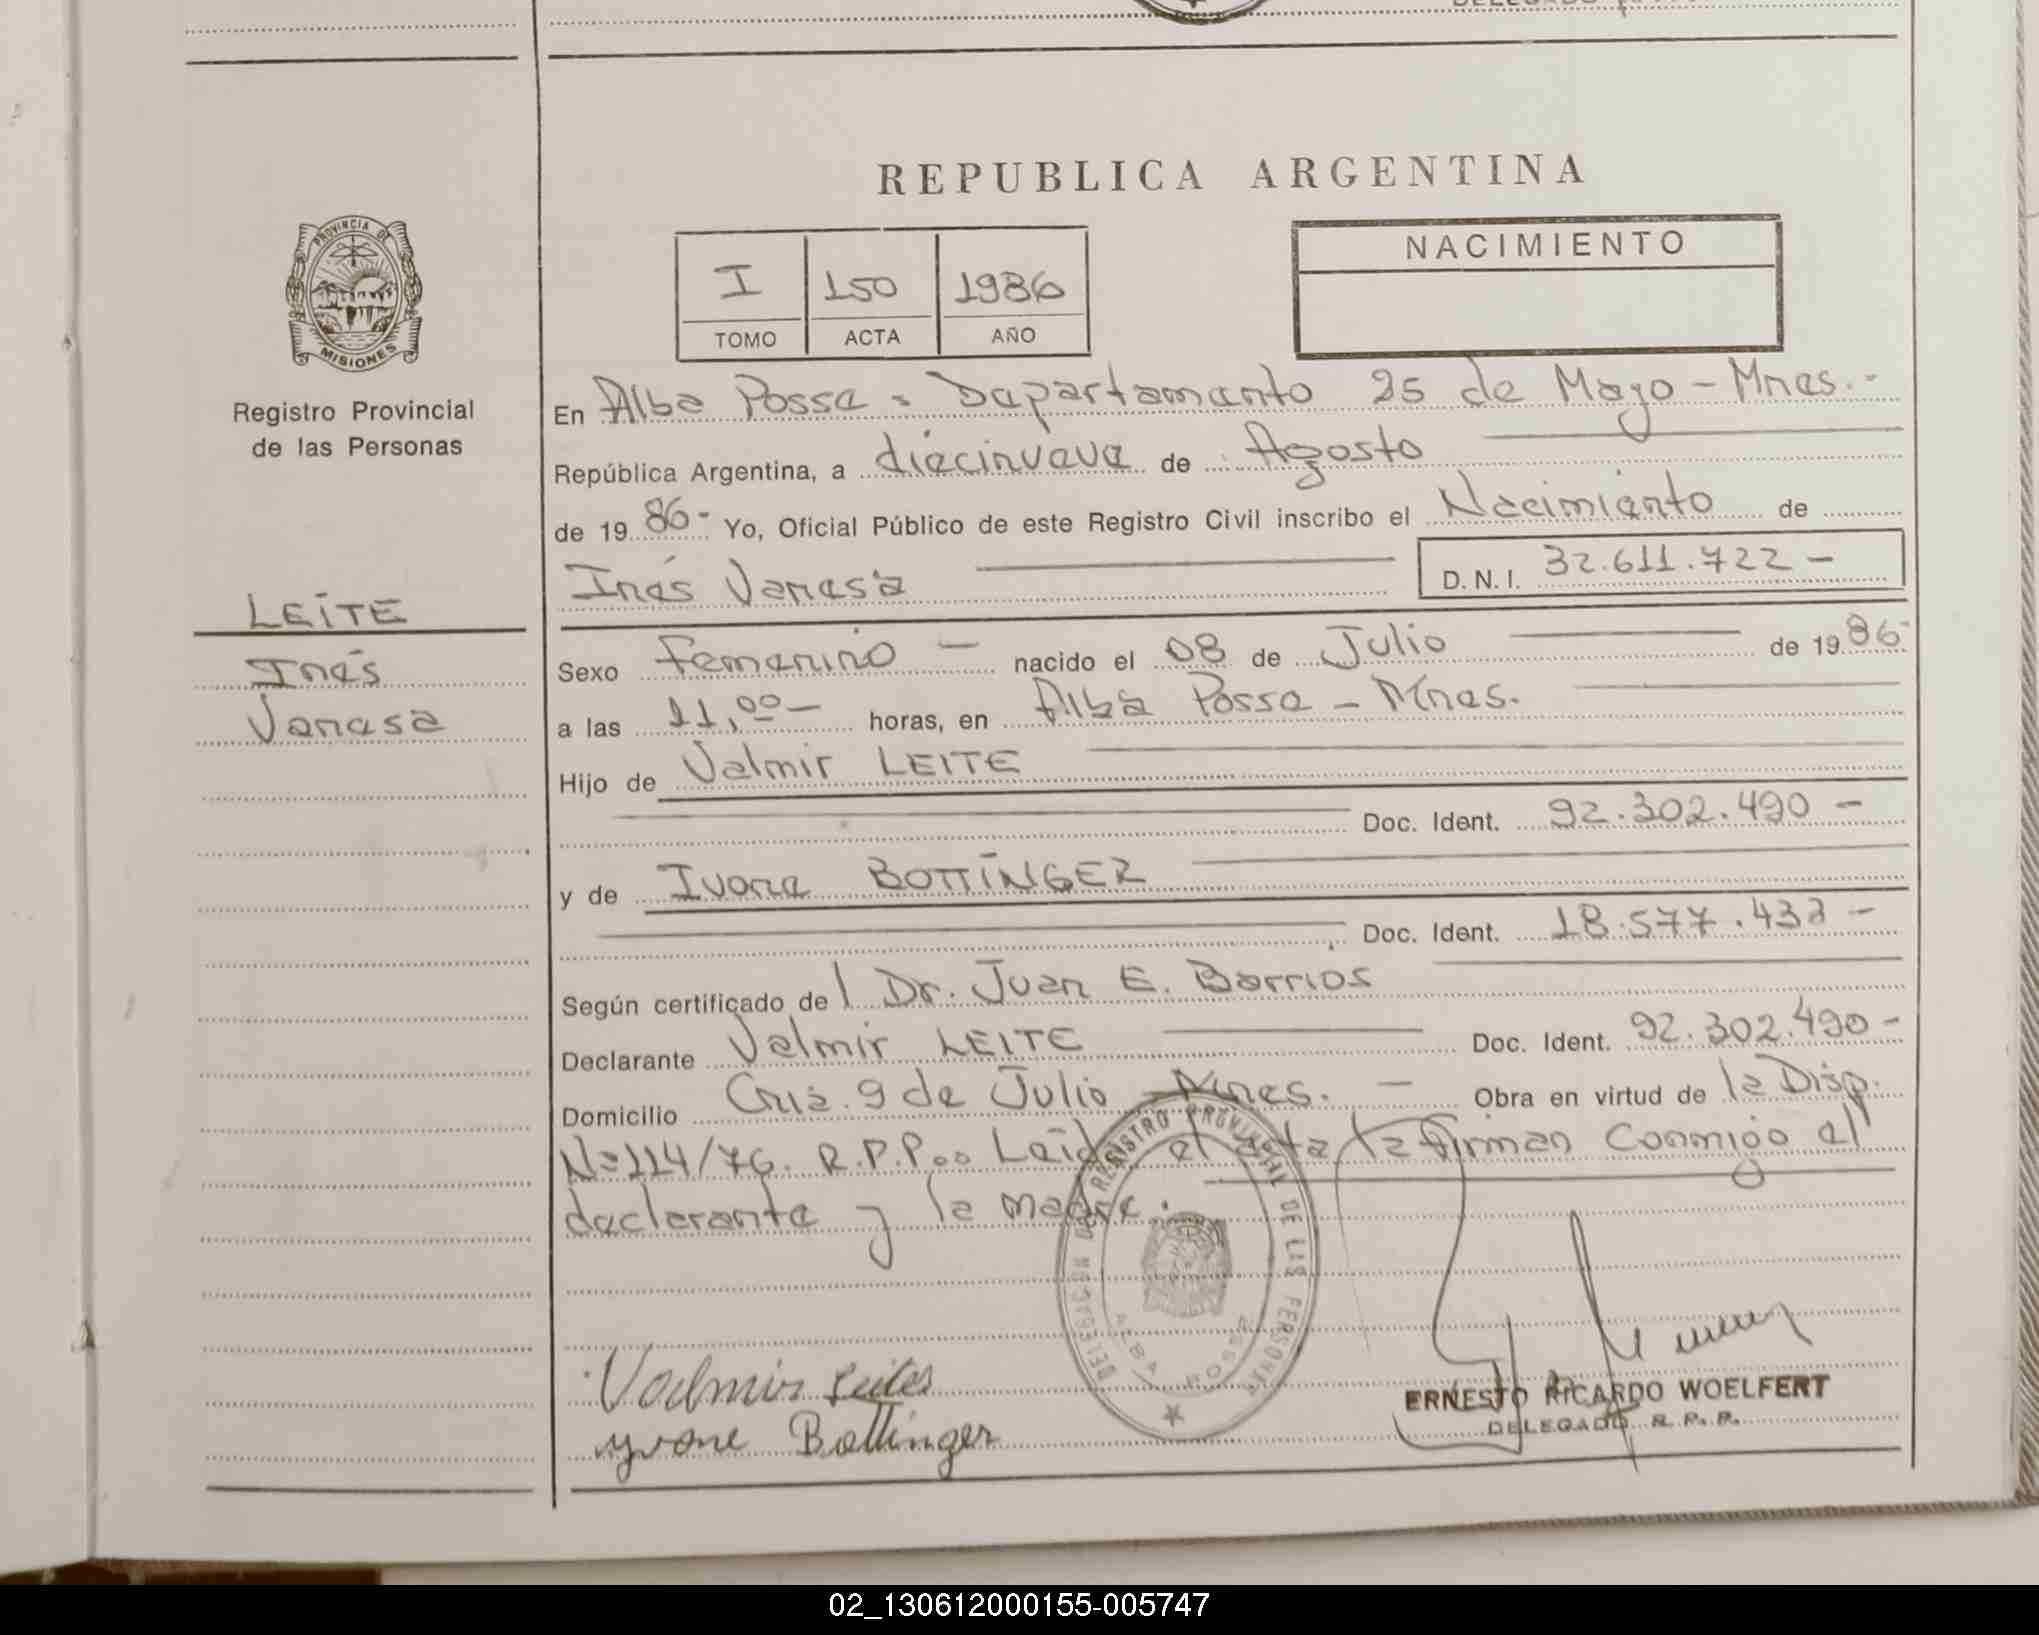 REPUBLICA ARGENTINA
PROVINCIA DE
MISIONES
Registro Provincial
de las Personas
I 150 1986
TOMO ACTA AÑO
NACIMIENTO
En Alba Posse - Departamento 25 de Mayo - Mnes.-
República Argentina, a diecinueve de Agosto
de 1986- Yo, Oficial Público de este Registro Civil inscribo el Nacimiento de
Inés Vanesa D.N.I. 32.611.722 -
LEITE
Inés
Vanesa
Sexo femenino - nacido el 08 de Julio de 1986-
a las 11,00 - horas, en Alba Posse - Mnes.
Hijo de Valmir LEITE
Doc. Ident. 92.302.490 -
y de Ivone BOTTINGER
Doc. Ident. 18.577.433 -
Según certificado del Dr. Juan E. Barrios
Declarante Valmir LEITE Doc. Ident. 92.302.490 -
Domicilio Cnia. 9 de Julio - Mnes. - Obra en virtud de la Disp.
Nº 114/76. R.P.P.. Leída el acta la firman conmigo el
declarante y la madre.
DELEGACION DEL REGISTRO PROVINCIAL DE LAS PERSONAS
ALBA POSSE
Valmir Leites
yvone Bottinger
ERNESTO RICARDO WOELFERT
DELEGADO R. P. P.
02_130612000155-005747